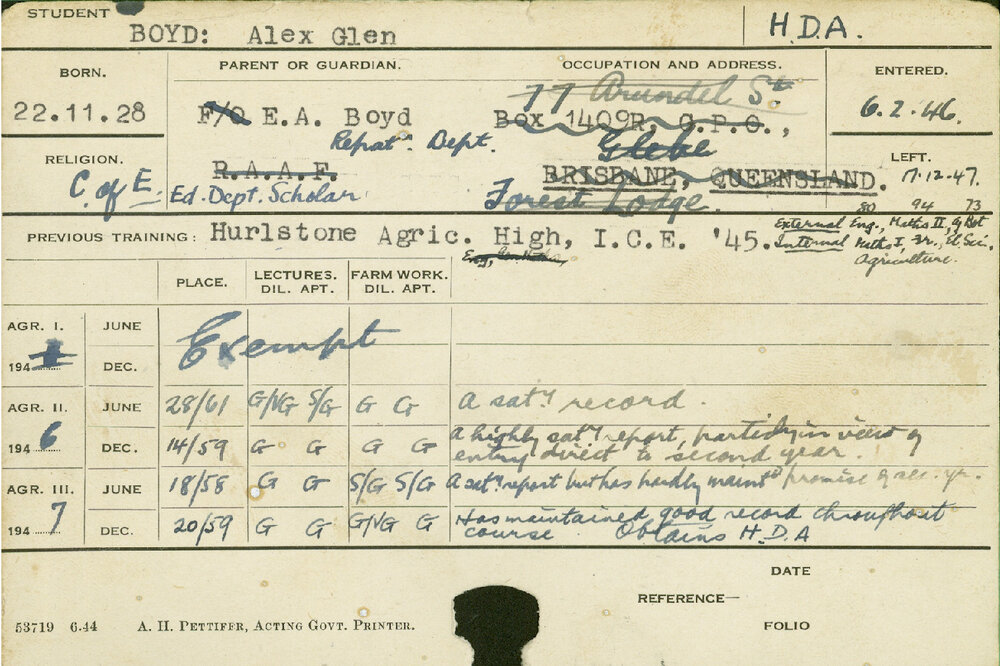 STUDENT
BOYD: Alex Glen
H.D.A.
BORN.
PARENT OR GUARDIAN.
OCCUPATION AND ADDRESS.
ENTERED.
77 Arundel St.
22.11.28
F/O E.A. Boyd
Box 1409R, G.P.O.,
6.2.46.
Repatn. Dept.
Glebe
RELIGION.
R.A.A.F.
BRISBANE, QUEENSLAND.
LEFT.
17.12.47.
C. of E.
Ed. Dept. Scholar
Forest Lodge.
80 94 73
PREVIOUS TRAINING: Hurlstone Agric. High, I.C.E. '45.
External Eng., Maths II, Bot
Internal Maths I, El. Sci.,
Agriculture.
PLACE.
LECTURES.
DIL. APT.
FARM WORK.
DIL. APT.
AGR. I.
JUNE
Exempt
194
DEC.
AGR. II.
JUNE
28/61 G/VG S/G G G A saty record.
1946
DEC.
14/59 G G G G A highly saty report, particly in view of
entry direct to second year.
AGR. III.
JUNE
18/58 G G S/G S/G A saty. report but has hardly maintd promise of sec. yr.
1947
DEC.
20/59 G G G/VG G Has maintained good record throughout
course Obtains H.D.A
DATE
REFERENCE—
53719 6.44 A. H. PETTIFER, ACTING GOVT. PRINTER.
FOLIO